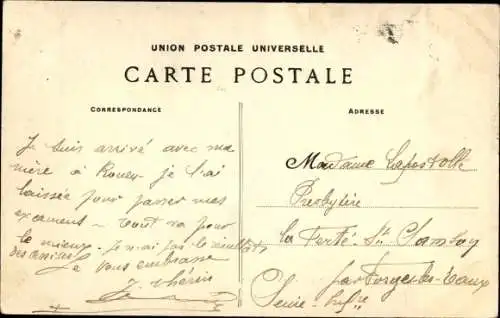 UNION POSTALE UNIVERSELLE
CARTE POSTALE
CORRESPONDANCE
ADRESSE
Je suis arrivé avec ma
mère à Rouen je l'ai
laissée pour passer mes
examens – tout va pour
le mieux. Je n'ai pas le résultat
des
Je vous embrasse
J. Thérin
Madame Lapostolle
Presbytère
La Ferté St Samson
par Forges-les-Eaux
Seine Infre